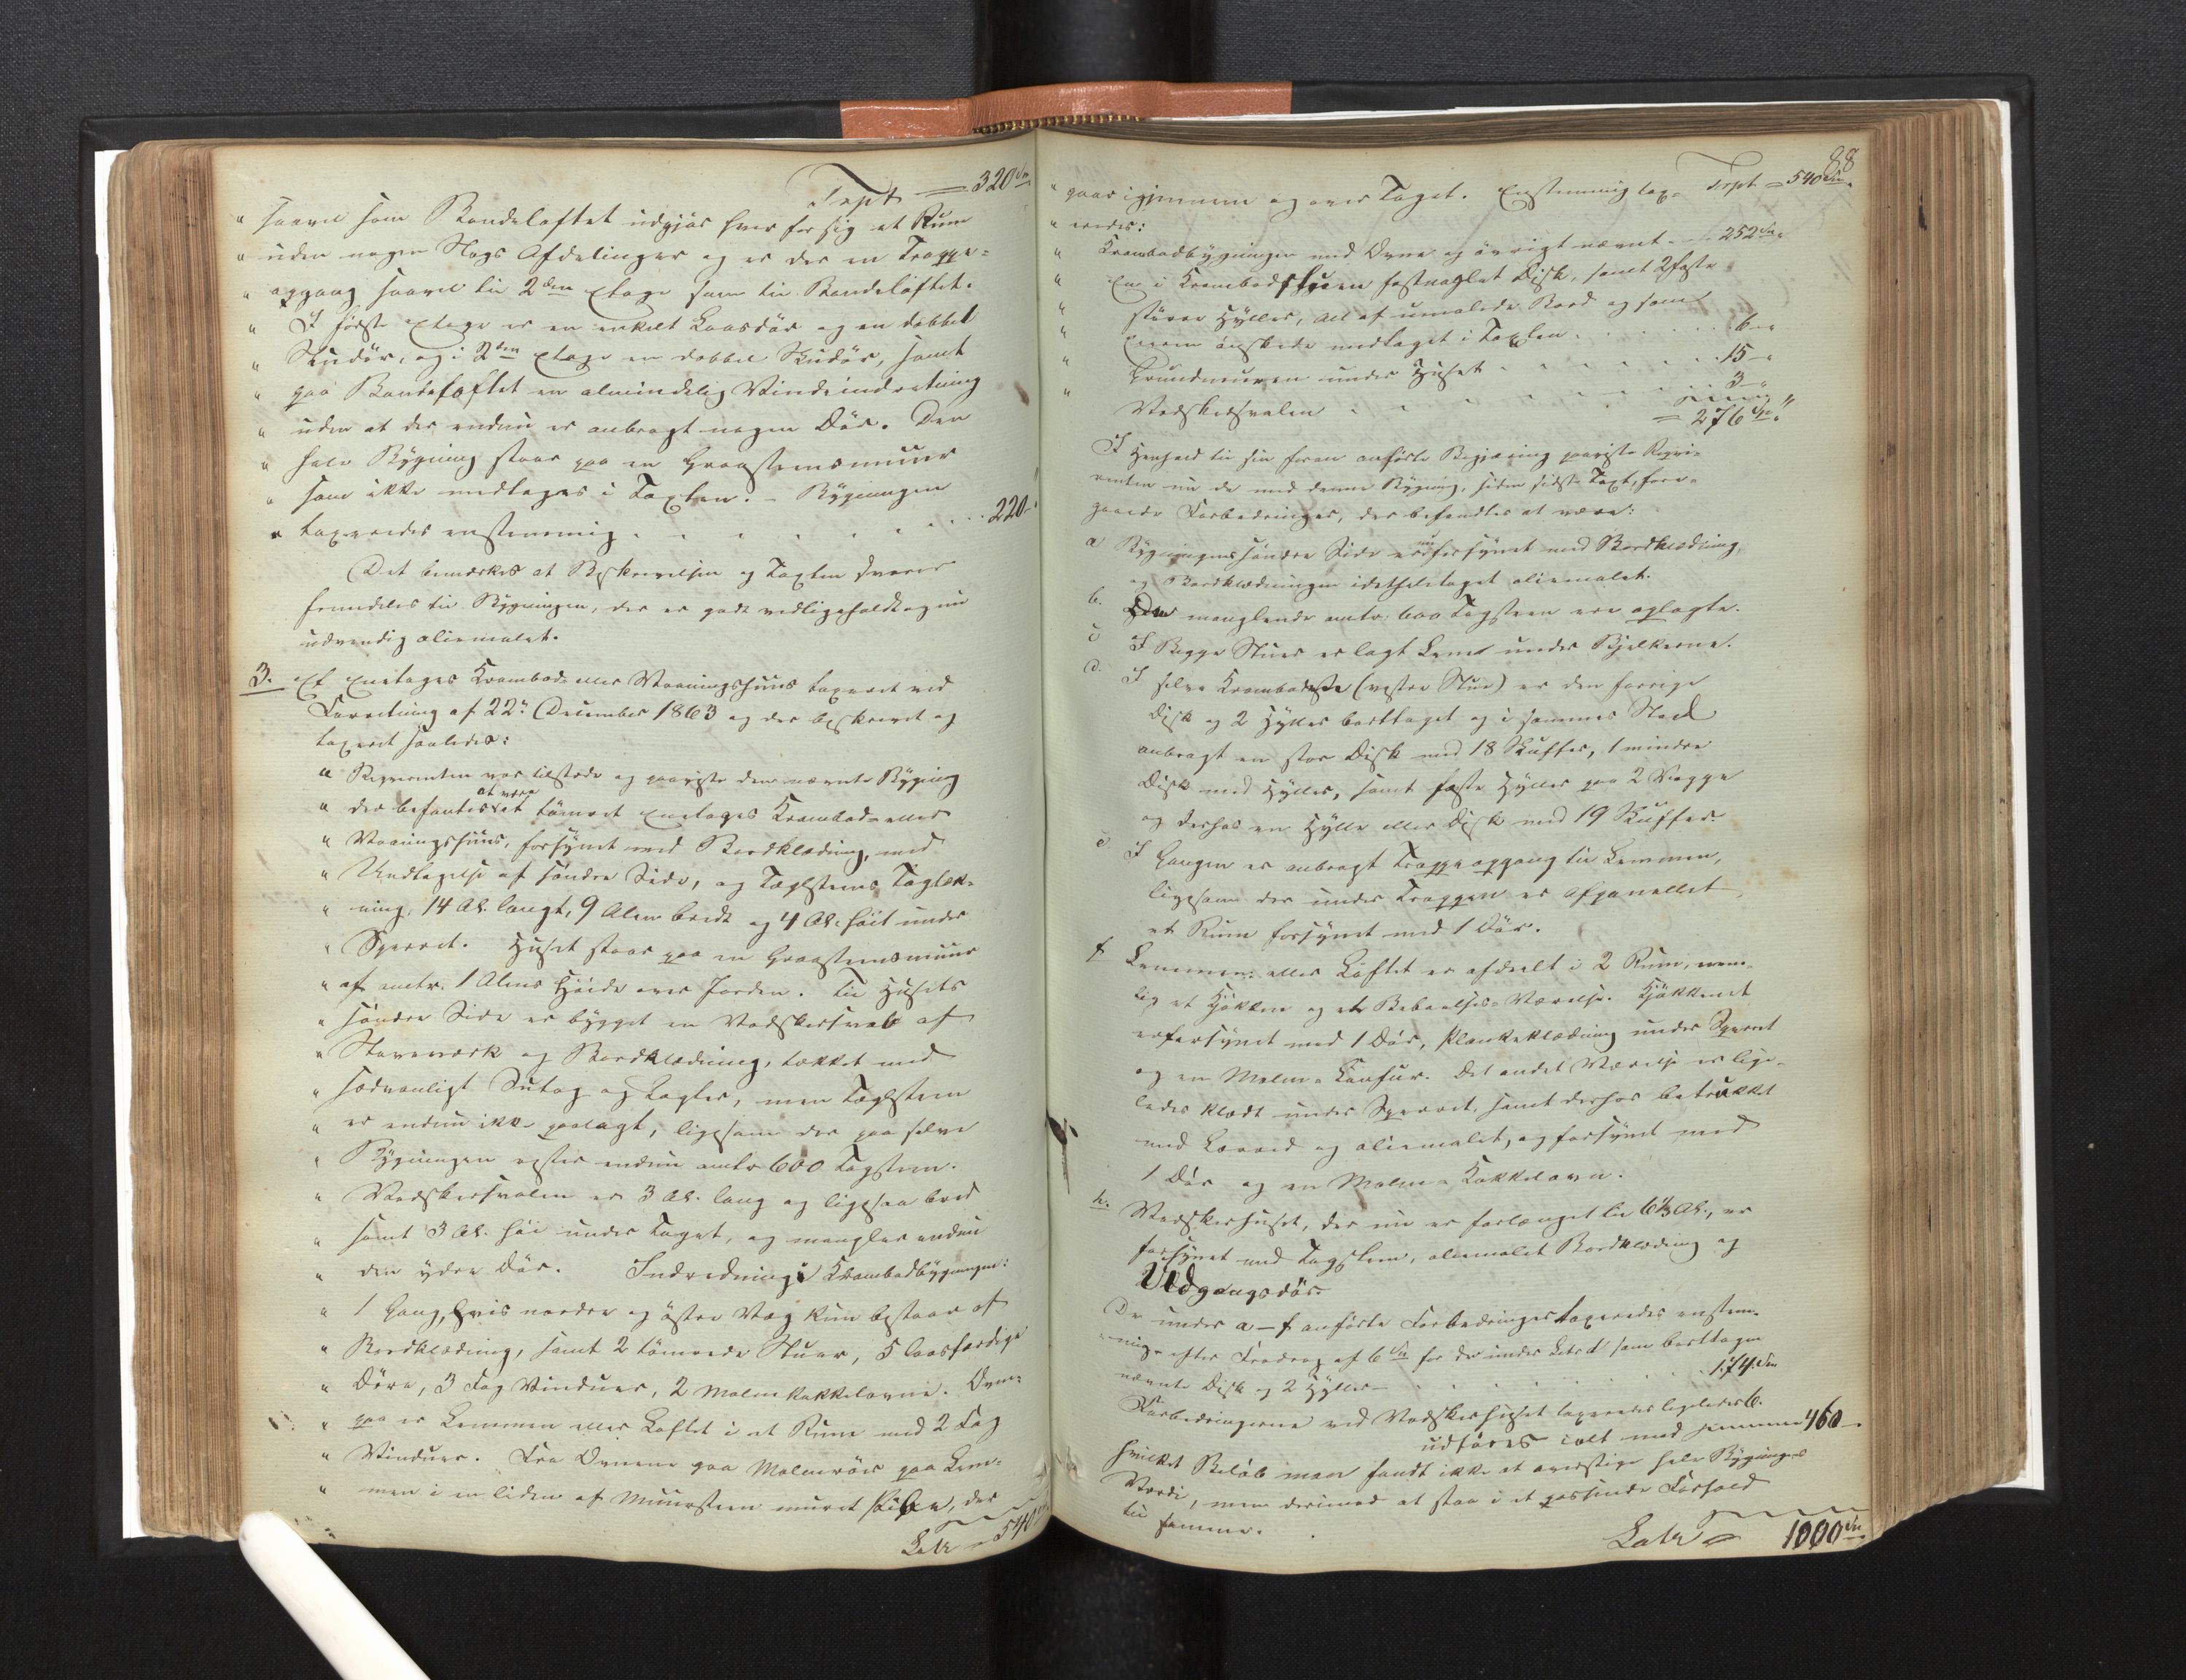 Trspt = 320 Sp
" saavel som Bandeloftet udgjør hver for sig et Rum
" uden nogen Slags Afdelinger og er der en Trappe-
" opgang saavel til 2den Etage som til Bandeloftet.
" I første Etage er en enkelt Laasdør og en dobbel
" Skudør, og i 2den Etage en dobbel Skudør, samt
" paa Bandeloftet en almindelig Vindeindretning
" uden at der endnu er anbragt nogen Dør. Den
" hele Bygning staar paa en Graasteensmuur
" som ikke medtages i Taxten. - Bygningen
" taxeredes enstemmig . . . . . . . 220 -
Det bemærkes at Beskrivelsen og Taxten svarer
fremdeles til Bygningen, der er godt vedligeholdt og nu
udvendig oliemalet.
3. Et Eneetages Krambod- eller Vaaningshuus taxeret ved
Forretning af 22de December 1863 og der beskrevet og
taxeret saaledes:
" Reqvirenten var tilstede og paaviste den nævnte Bygning
" der befantes at være et tømret Eneetages Krambod- eller
" Vaaningshuus, forsynet med Bordklædning, med
" Undtagelse af søndre Side, og Teglsteens Taglæk-
" ning, 14 Al. langt, 9 Alen bredt og 4 Al. høit under
" Sperret. Huset staar paa en Graasteensmuur
" af omtr. 1 Alens Høide over Jorden. Til Husets
" søndre Side er bygget en Vadskersval af
" Staveværk og Bordklædning, tækket med
" sædvanligt Sutag og Lægter, men Teglsteen
" er endnu ikke paalagt, ligesom der paa selve
" Bygningen rester endnu omtr 600 Tagsteen.
" Vadskersvalen er 3 Al. lang og ligesaa bred
" samt 3 Al. høi under Taget, og mangler endnu
" den ydre Dør. Indredning i Krambodbygningen:
" 1 Gang, hvis nordre og østre Væg kun bestaar af
" Bordklædning, samt 2 tømrede Stuer, 5 laasfærdige
" Døre, 3 Fag Vinduer, 2 Malmkakkelovne. Oven-
" paa er Lemmen eller Loftet i et Rum med 2 Fag
" Vinduer. Fra Ovnene gaa Malmrør paa Lem-
" men i en liden af Muursteen muret Pibe, der
Latr = 540
88
Trspt = 540 Sp
" gaar igjennem og over Taget. Enstemmig tax-
" eredes:
" Krambodbygningen med Ovne og øvrigt nævnt . . 252 Sp
" En i Krambodstuen fastnaglet Disk, samt 2 faste
" større Hylder, alt af umalede Bord og som
" Eieren ønskede medtaget i Taxten . . . . . 6 - "
" Grundmuren under Huset . . . . . . 15 - "
" Vadskersvalen . . . . . . . 3 - "
= 276 Sp "
I Henhold til sin foran anførte Begjæring paaviste Reqvi-
renten nu de med denne Bygning, siden sidste Taxt, fore-
gaaede Forbedringer, der befandtes at være:
a Bygningens søndre Side er nu forsynet med Bordklædning,
og Bordklædningen idetheletaget oliemalet.
b. De manglende omtr. 600 Tagsteen ere oplagte.
c I Begge Stuer er lagt Lem under Bjelkerne.
d. I selve Krambodste (vestre Stue) er den forrige
Disk og 2 Hyller borttaget og i sammes Sted
anbragt en stor Disk med 18 Skuffer, 1 mindre
Disk med Hyller, samt faste Hyller paa 2 Vægge
og derhos en Hylle eller Disk med 19 Skuffer.
e I Gangen er anbragt Trappeopgang til Lemmen,
ligesom der under Trappen er afpanellet
et Rum forsynet med 1 Dør.
f Lemmen eller Loftet er afdeelt i 2 Rum, nem-
lig et Kjøkken og et Beboelses-Værelse. Kjøkkenet
er forsynet med 1 Dør, Plankeklædning under Sperret
og en Malm-Komfur. Det andet Værelse er lige-
ledes klædt under Sperret, samt derhos betrukket
med Lærred og oliemalet, og forsynet med
1 Dør og en Malm-Kakkelovn.
h. Vadskerhuset, der nu er forlænget til 6½ Al., er
forsynet med Tagsteen, oliemalet Bordklædning og
Udgangsdør.
De under a-f anførte Forbedringer taxeredes enstem-
mig efter Fradrag af 6 Sp for de under Litr d som borttagen
nævnte Disk og 2 Hyller . . . . . . 174 Sp
Forbedringerne ved Vadskerhuset taxeredes ligeledes 6.
udføres ialt med summa 460 -
hvilket Beløb man fandt ikke at overstige hele Bygningens
Værdi, men derimod at staa i et passende Forhold
til samme.
Latr = 1000 Sp